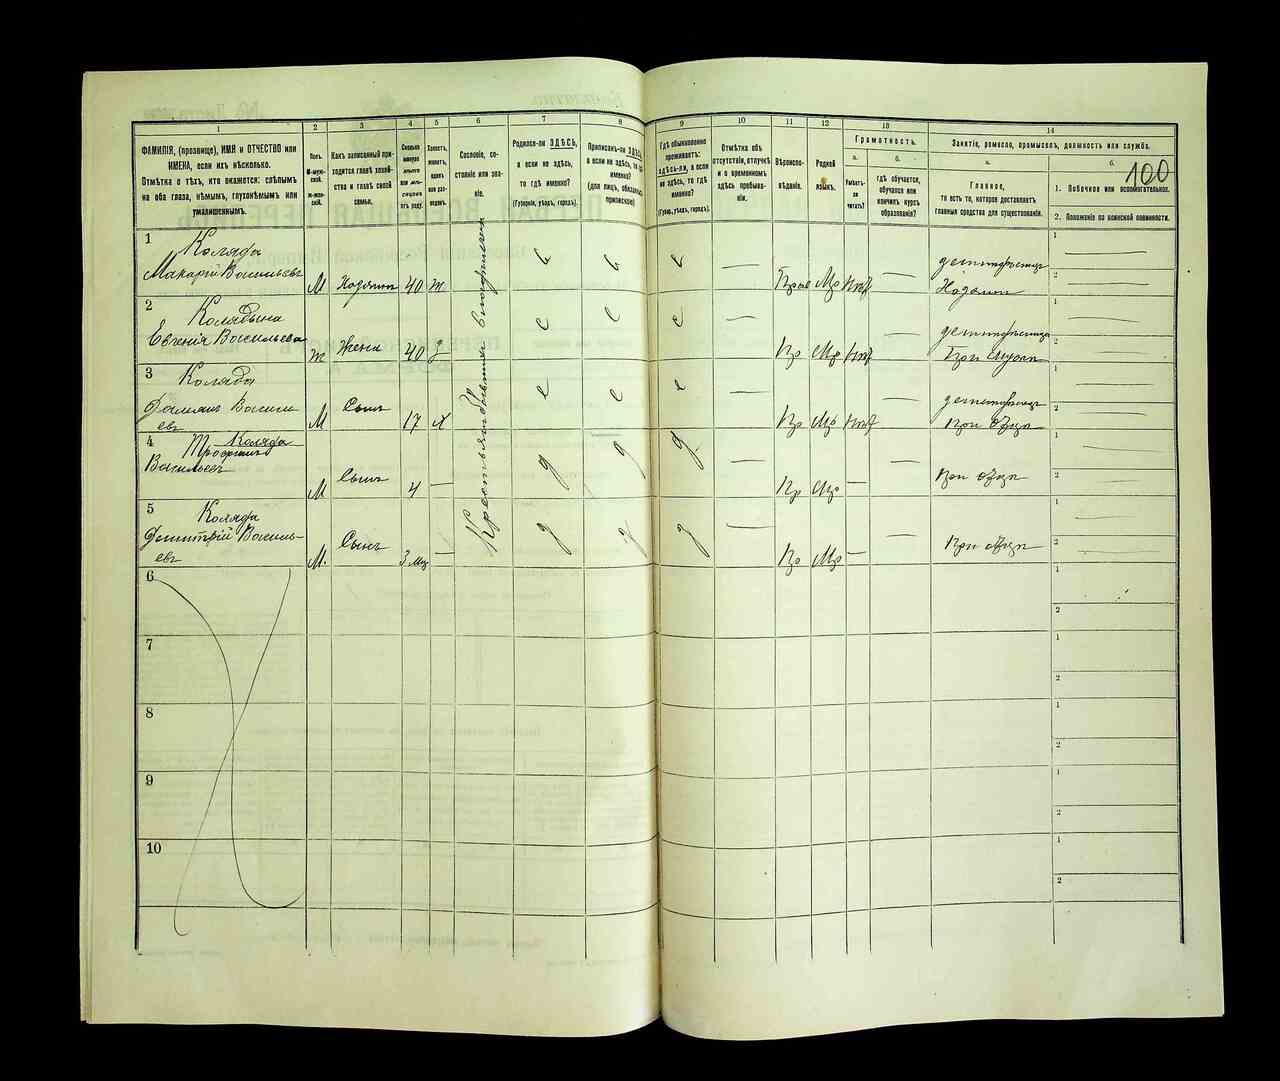 100
1
2
3
4
5
6
7
8
9
10
11
12
13
14
ФАМИЛІЯ, (прозвище), ИМЯ и ОТЧЕСТВО или
ИМЕНА, если ихъ нѣсколько.
Отмѣтка о тѣхъ, кто окажется: слѣпымъ
на оба глаза, нѣмымъ, глухонѣмымъ или
умалишеннымъ.
Полъ.
М-муж-
ской.
ж-жен-
скій.
Какъ записанный при-
ходится главѣ хозяй-
ства и главѣ своей
семьи.
Сколько
минуло
лѣтъ
или мѣ-
сяцевъ
отъ роду.
Холостъ,
женатъ,
вдовъ
или раз-
веденъ.
Сословіе, со-
стояніе или зва-
ніе.
Родился-ли ЗДѢСЬ,
а если не здѣсь,
то гдѣ именно?
(Губернія, уѣздъ, городъ).
Приписанъ-ли ЗДѢСЬ,
а если не здѣсь, то гдѣ
именно?
(для лицъ, обязанныхъ
припискою)
Гдѣ обыкновенно
проживаетъ:
здѣсь-ли, а если
не здѣсь, то гдѣ
именно?
(Губер., уѣздъ, городъ).
Отмѣтка объ
отсутствіи, отлучкѣ
и о временномъ
здѣсь пребыва-
ніи.
Вѣроиспо-
вѣданіе.
Родной
языкъ.
Грамотность.
а.
Умѣетъ-
ли
читать?
б.
гдѣ обучается,
обучался или
кончилъ курсъ
образованія?
Занятіе, ремесло, промыселъ, должность или служба.
а.
Главное,
то есть то, которое доставляетъ
главныя средства для существованія.
б.
1. Побочное или вспомогательное.
2. Положеніе по воинской повинности.
1
Коляда
Макарій Васильевъ
М Хозяинъ 40 ж
Прав Мр
Хозяинъ
1
2
2
Колядына
Евгенія Васильева
ж Жена 40
Пр Мр
При мужѣ
1
2
3
Коляда
Васили
евъ
М Сынъ 17 х
Пр Мр
При отцѣ
1
2
4
Коляда
Трофимъ
Васильевъ
М Сынъ 4 —
Пр Мр —
При отцѣ
1
2
5
Коляда
Дмитрій Василь-
евъ
М. Сынъ 3 мц —
Пр Мр —
При отцѣ
1
2
6
1
2
7
1
2
8
1
2
9
1
2
10
1
2